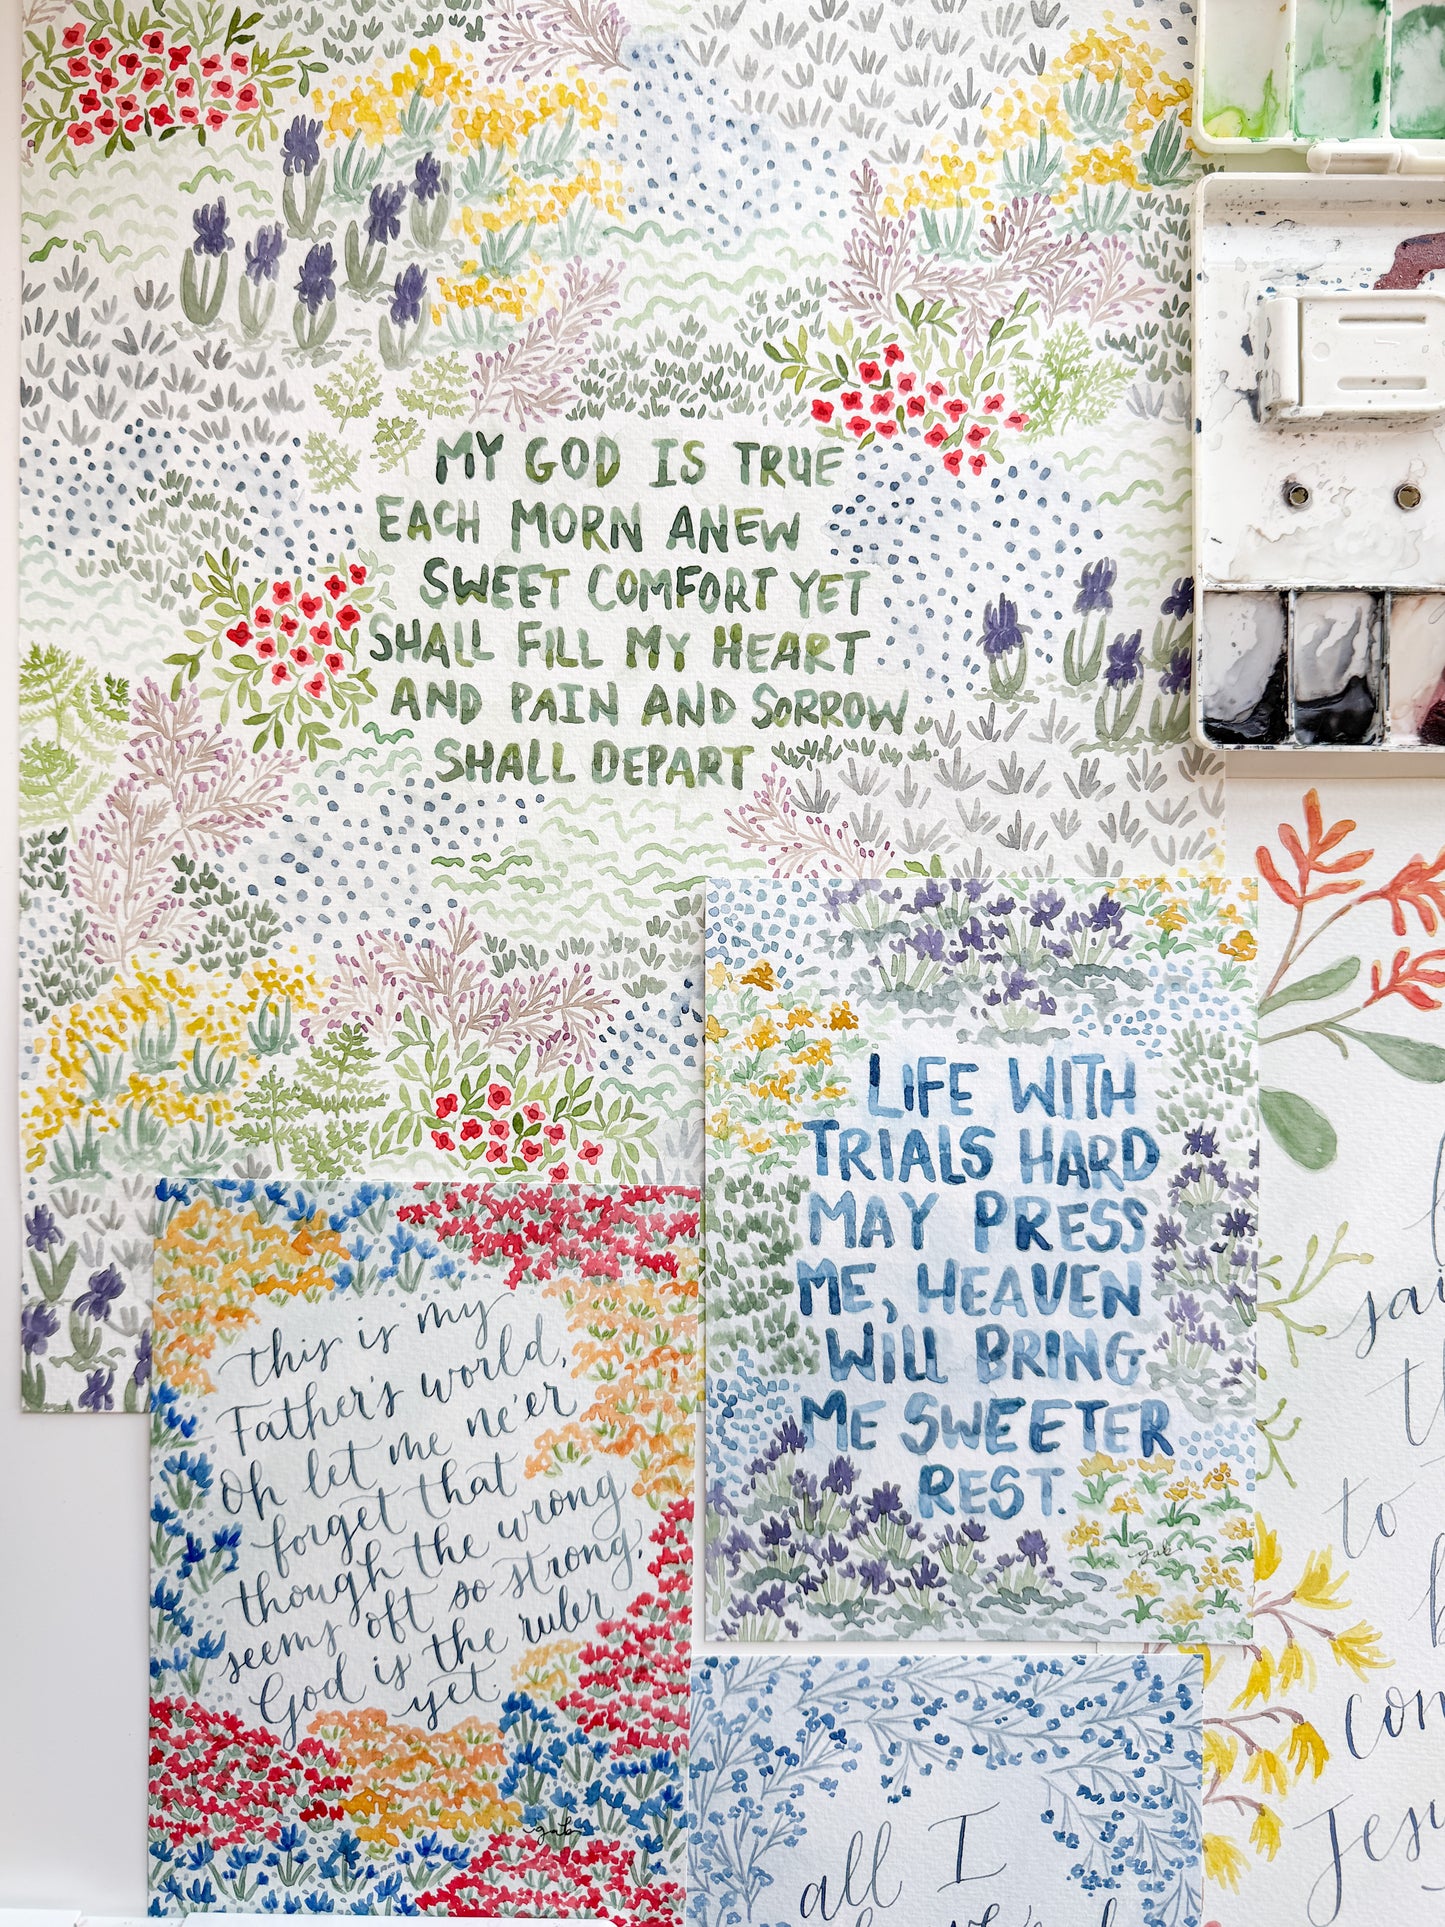 MY GOD IS TRUE
EACH MORN ANEW
SWEET COMFORT YET
SHALL FILL MY HEART
AND PAIN AND SORROW
SHALL DEPART
LIFE WITH
TRIALS HARD
MAY PRESS
ME, HEAVEN
WILL BRING
ME SWEETER
REST.
gab
this is my
Father's world,
Oh let me ne'er
forget that
though the wrong
seems oft so strong,
God is the ruler
yet.
gab
all I
to
Jesu